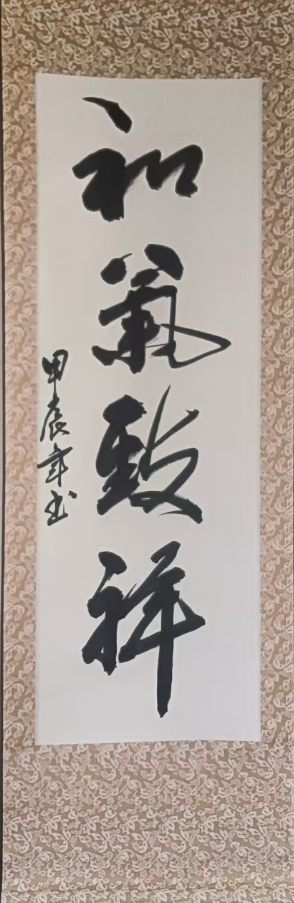 和氣致祥
甲辰年书